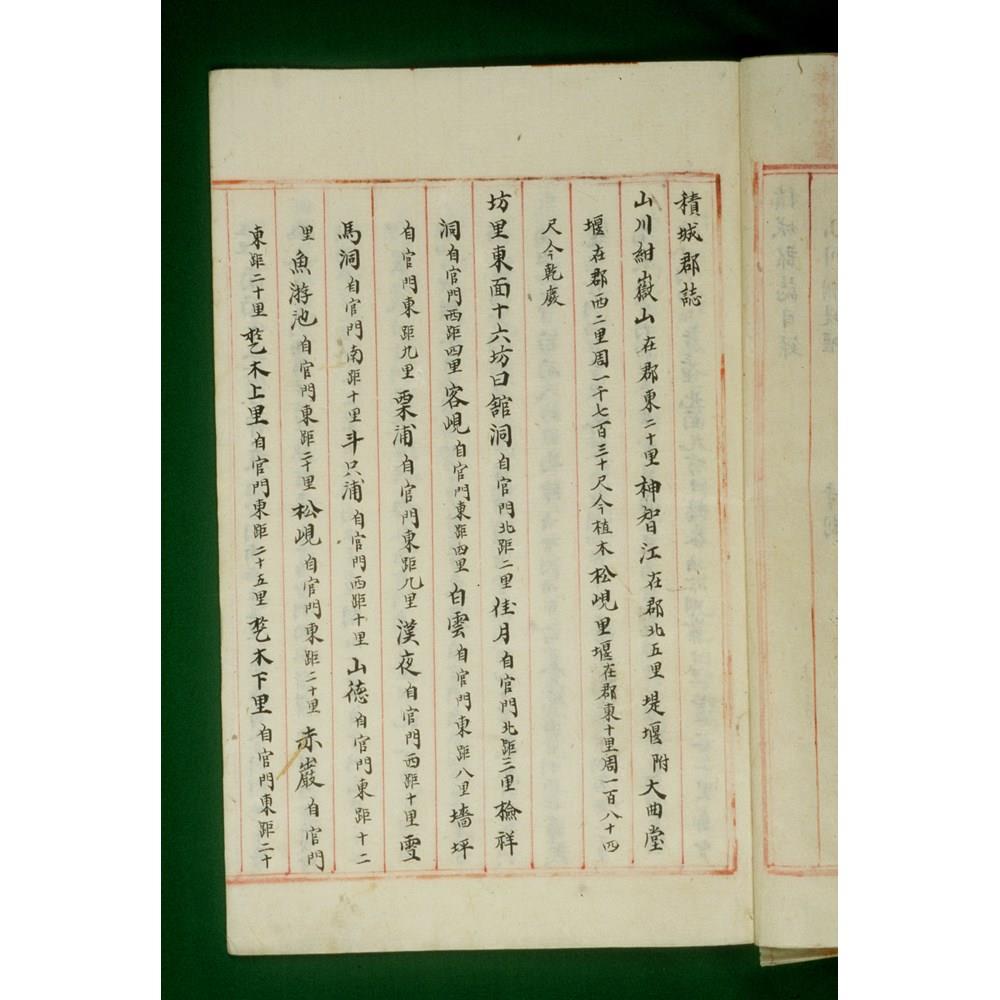 積城郡誌
山川紺嶽山在郡東二十里神智江在郡北五里堤堰附大曲堂
堰在郡西二里周一千七百三十尺今植木松峴里堰在郡東十里周一百八十四
尺今乾廢
坊里東面十六坊曰舘洞自官門北距二里佳月自官門北距三里檢祥
洞自官門西距四里客峴自官門東距四里白雲自官門東距八里墻坪
自官門東距九里栗浦自官門東距九里漢夜自官門西距十里雪
馬洞自官門南距十里斗只浦自官門西距十里山德自官門東距十二
里魚游池自官門東距二十里松峴自官門東距二十里赤巖自官門
東距二十里木上里自官門東距二十五里木下里自官門東距二十